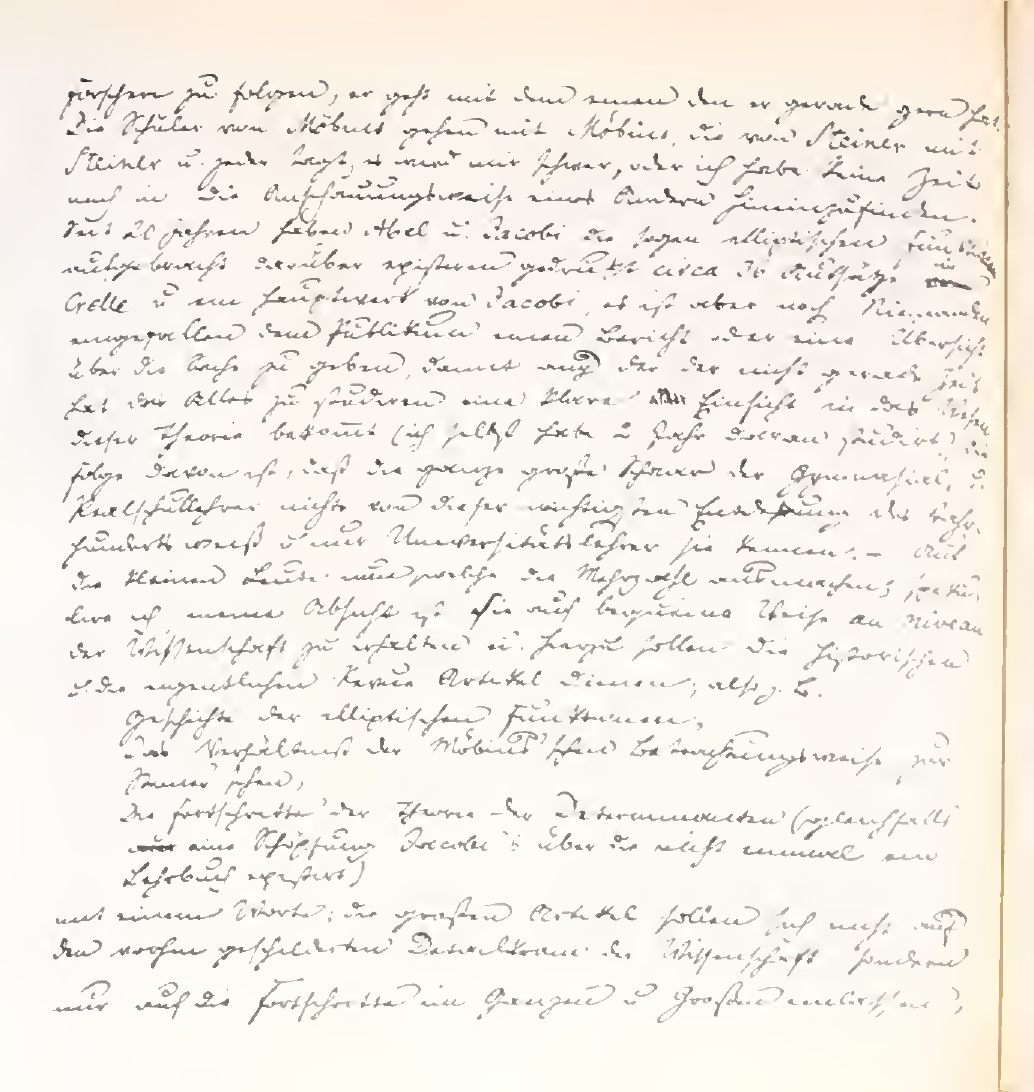 Forschern zu folgen, er geht mit dem einen den er gerade gern hat.
Die Schüler von Möbius gehen mit Möbius, die von Steiner mit
Steiner u. jeder sagt, es wird mir schwer, oder ich habe keine Zeit
mich in die Anschauungsweise eines Andern hineinzufinden.
Seit 20 Jahren haben Abel u. Jacobi die sogen elliptischen Funktionen
aufgebracht darüber existiren gedruckt circa 36 Aufsätze in
Crelle u ein Hauptwerk von Jacobi, es ist aber noch Niemanden
eingefallen dem Publikum einen Bericht oder eine Übersicht
über die Sache zu geben, damit auch der der nicht gerade Zeit
hat das Alles zu studieren eine klare Einsicht in das Wesen
dieser Theorie bekomt (ich selbst habe 2 Jahr daran studirt), die
Folge davon ist, daß die ganze große Schaar der Gymnasial u.
Realschullehrer nichts von dieser wichtigsten Entdeckung des Jahr-
hunderts weiß u nur Universitätslehrer sie kennen. – Auf
die kleinen Leute nun, welche die Mehrzahl ausmachen, speku-
lire ich meine Absicht ist sie auf bequeme Weise au Niveau
der Wissenschaft zu erhalten u. hierzu sollen die historischen
u. die eigentlichen Revue Artikel dienen, also z. B.
Geschichte der elliptischen Funktionen,
das Verhältniß der Möbius'schen Betrachtungsweise zur
Steiner'schen,
die Fortschritte der Theorie der Determinanten (gleichfalls
eine Schöpfung Jacobi's über die nicht einmal ein
Lehrbuch existirt)
mit einem Worte: die großen Artikel sollen sich nicht auf
den vorhin geschilderten Detailkram der Wissenschaft sondern
nur auf die Fortschritte im Ganzen u Großen einlassen,